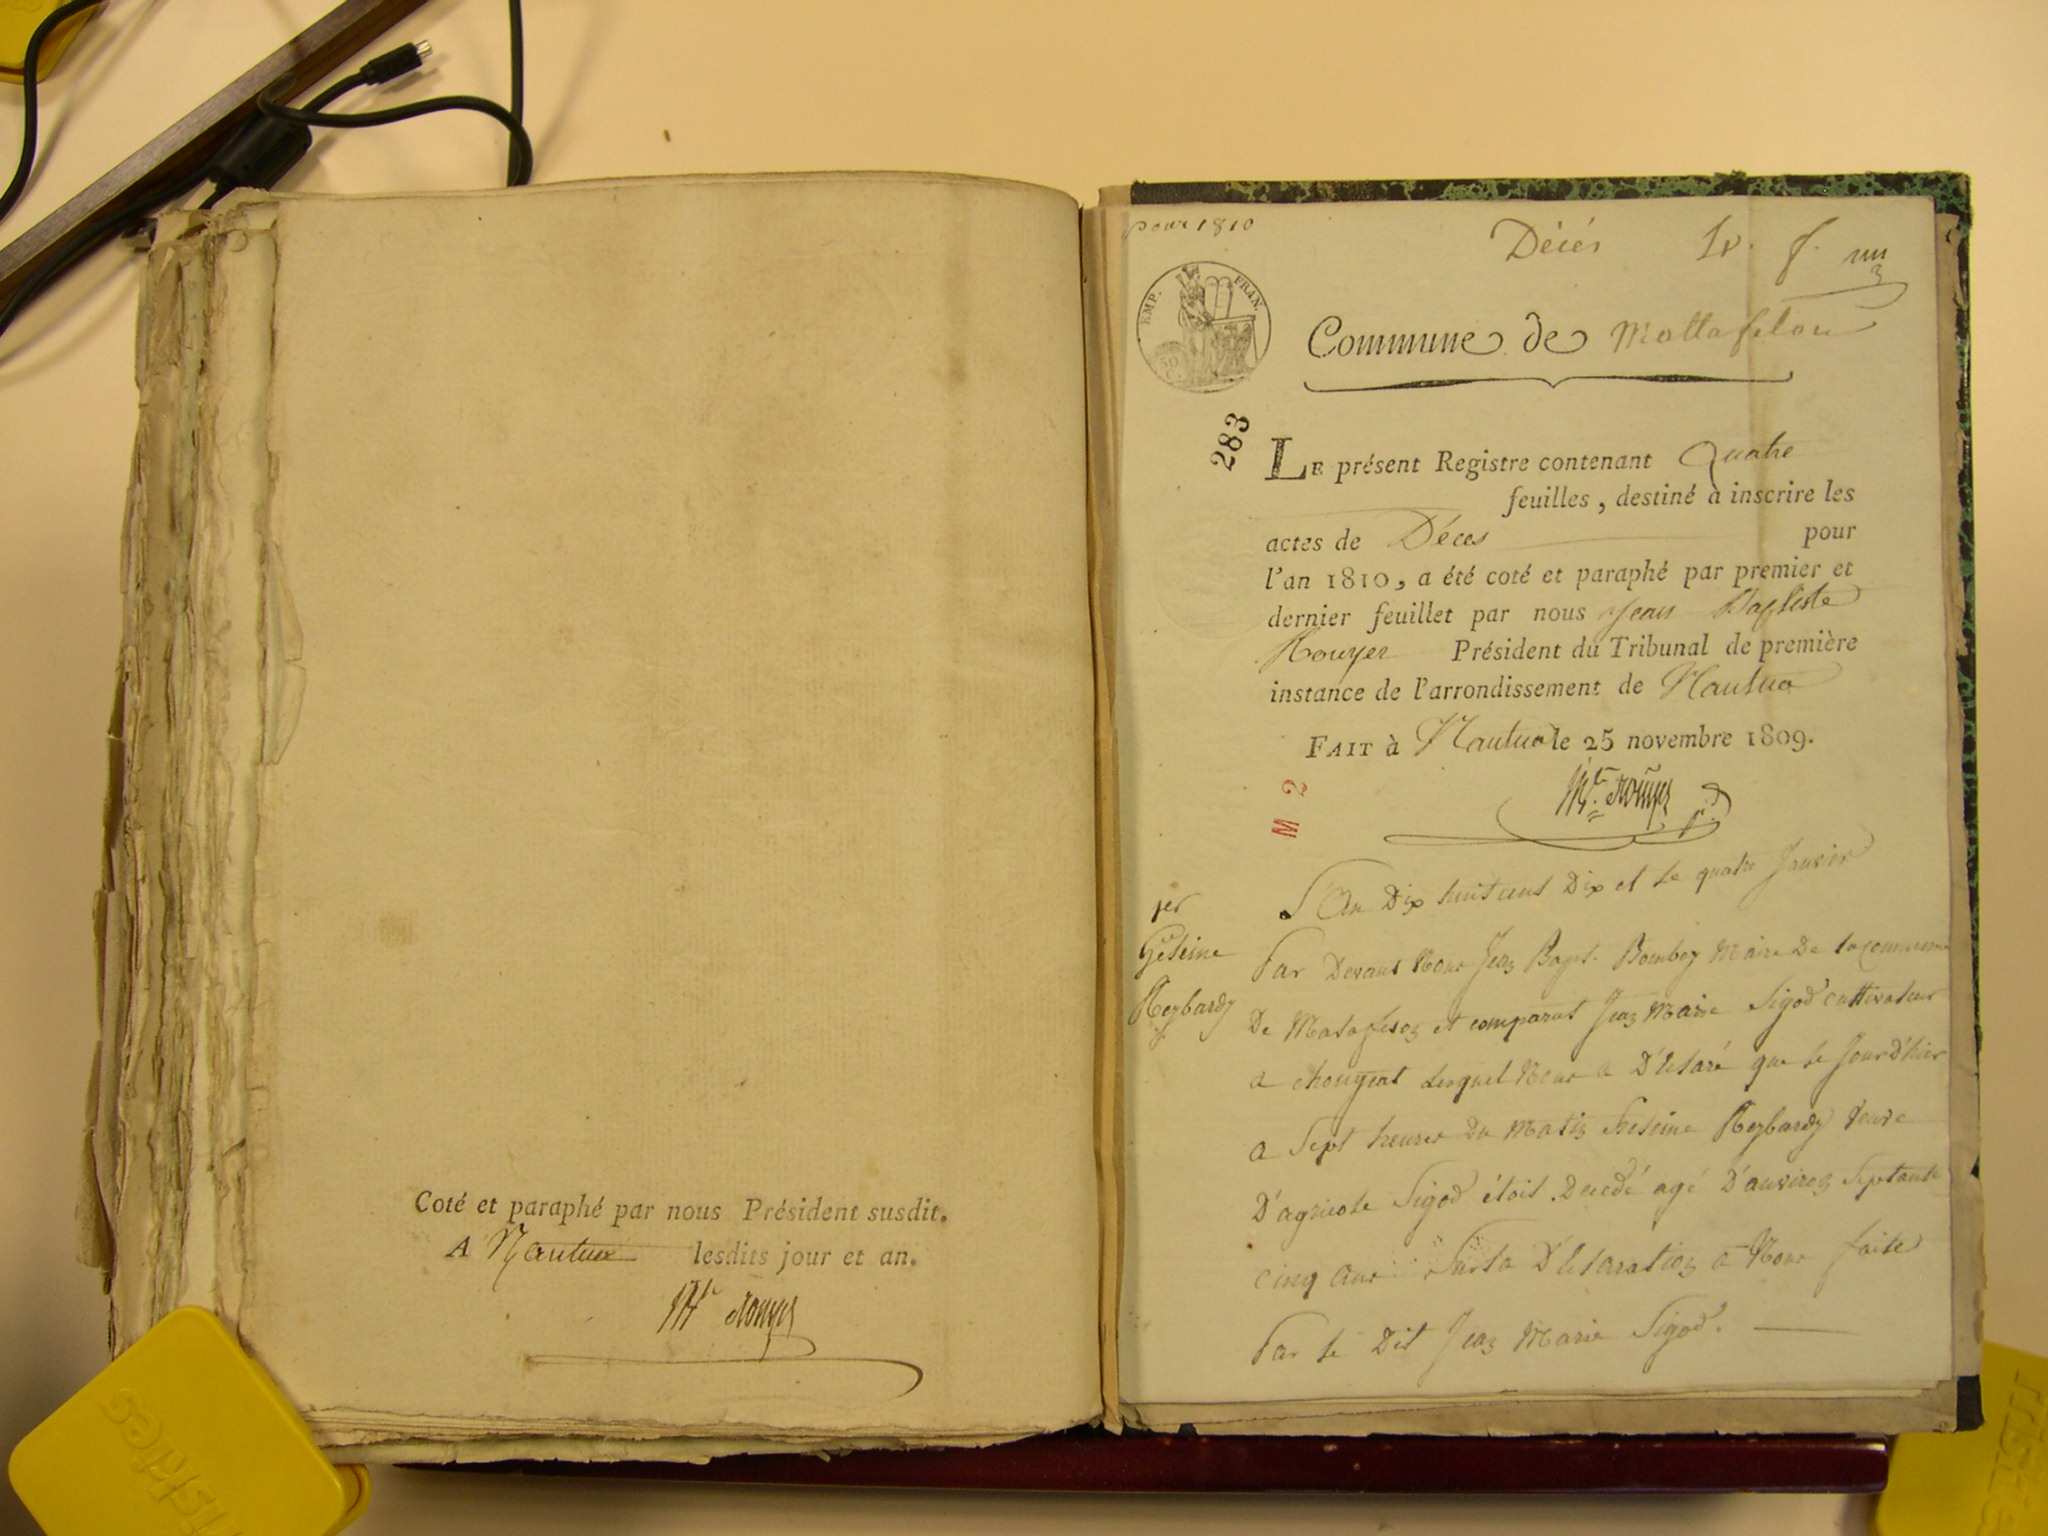 Coté et paraphé par nous Président susdit.
A Nantua lesdits jour et an.
Rouyer
pour 1810
Décés 1er. f.
EMP. FRAN.
Commune de Mattafelon
283
LE présent Registre contenant Quatre
feuilles, destiné à inscrire les
actes de Déces pour
l'an 1810, a été coté et paraphé par premier et
dernier feuillet par nous Jean Baptiste
Rouyer Président du Tribunal de première
instance de l'arrondissement de Nantua
FAIT à Nantua le 25 novembre 1809.
M 2
Rouyer
1er
Reybardy
L'An Dix huit cent Dix et le quatre Janvier
Par Devant Nous Jean Bapt. Bomboy Maire De la commune
De Matafelon et comparut Jean Marie Sigod cultivateur
a chougeat Lequel Nous a Déclaré que le Jourd'hier
a Sept heures Du Matin Reybardy veuve
D'agricole Sigod étoit Decedé agé D'anviron Septante
cinq ans Sur la Déclaration a Nous faite
Par le Dit Jean Marie Sigod.